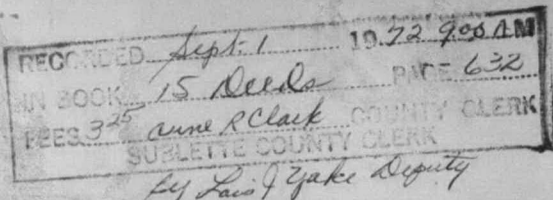 RECORDED Sept. 1 1972 9:00 AM
IN BOOK 15 Deeds PAGE 632
FEES 3 25 Anne R Clark COUNTY CLERK
SUBLETTE COUNTY CLERK
by Lois J Yake Deputy